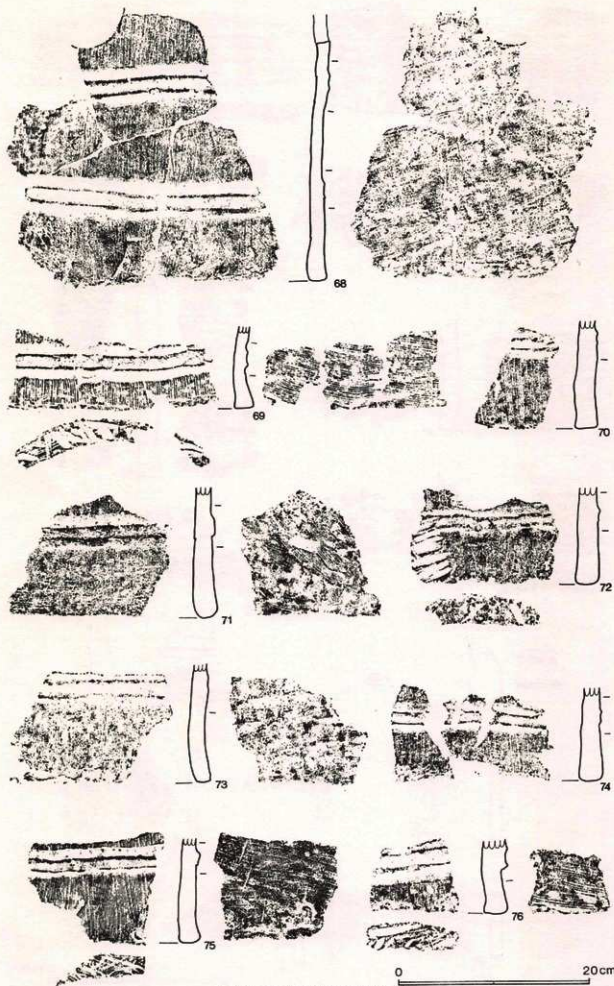 68
69
70
71
72
73
74
75
76
0 20cm